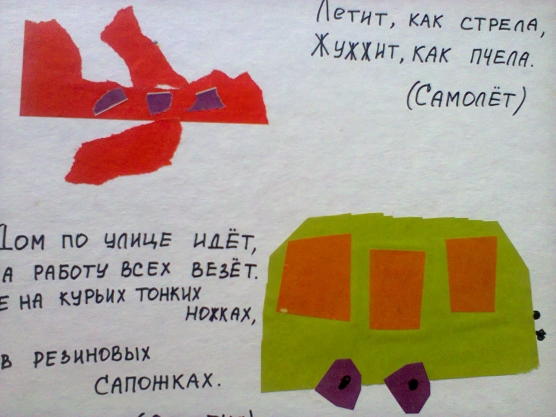 Летит, как стрела,
Жужжит, как пчела.
(Самолёт)
Дом по улице идёт,
а работу всех везёт.
Е на курьих тонких
ножках,
в резиновых
сапожках.